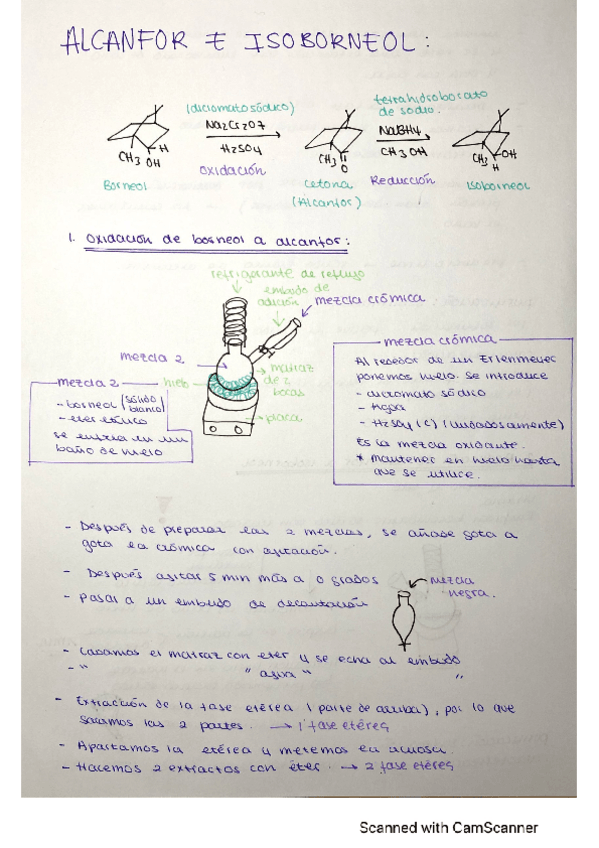 ALCANFOR E ISOBORNEOL:
(dicromato sódico)
Na2Cr2O7
H2SO4
oxidación
tetrahidroborato
de sodio.
NaBH4
CH3OH
Reducción
CH3 OH
H
Borneol
CH3
O
Cetona
(Alcanfor)
CH3
OH
H
Isoborneol
1. Oxidación de borneol a alcanfor:
refrigerante de reflujo
embudo de
adición
mezcla crómica
mezcla 2
matraz
de 2
bocas
hielo
placa
mezcla 2
- borneol (sólido
blanco)
- eter etílico
se enfría en un
baño de hielo
mezcla crómica
Alrededor de un Erlenmeyer
ponemos hielo. Se introduce
- dicromato sódico
- Agua
- H2SO4 (c) (cuidadosamente)
Es la mezcla oxidante.
* mantener en hielo hasta
que se utilice.
- Después de preparar las 2 mezclas, se añade gota a
gota la crómica con agitación.
- Después agitar 5 min más a 0 grados
- Pasar a un embudo de decantación
mezcla
negra.
- Lavamos el matraz con eter y se echa al embudo
- " " agua " "
- Extracción de la fase etérea (parte de arriba), por lo que
sacamos las 2 partes. → 1 fase etérea
- Apartamos la etérea y metemos la acuosa.
- Hacemos 2 extractos con éter. → 2 fase etérea
Scanned with CamScanner